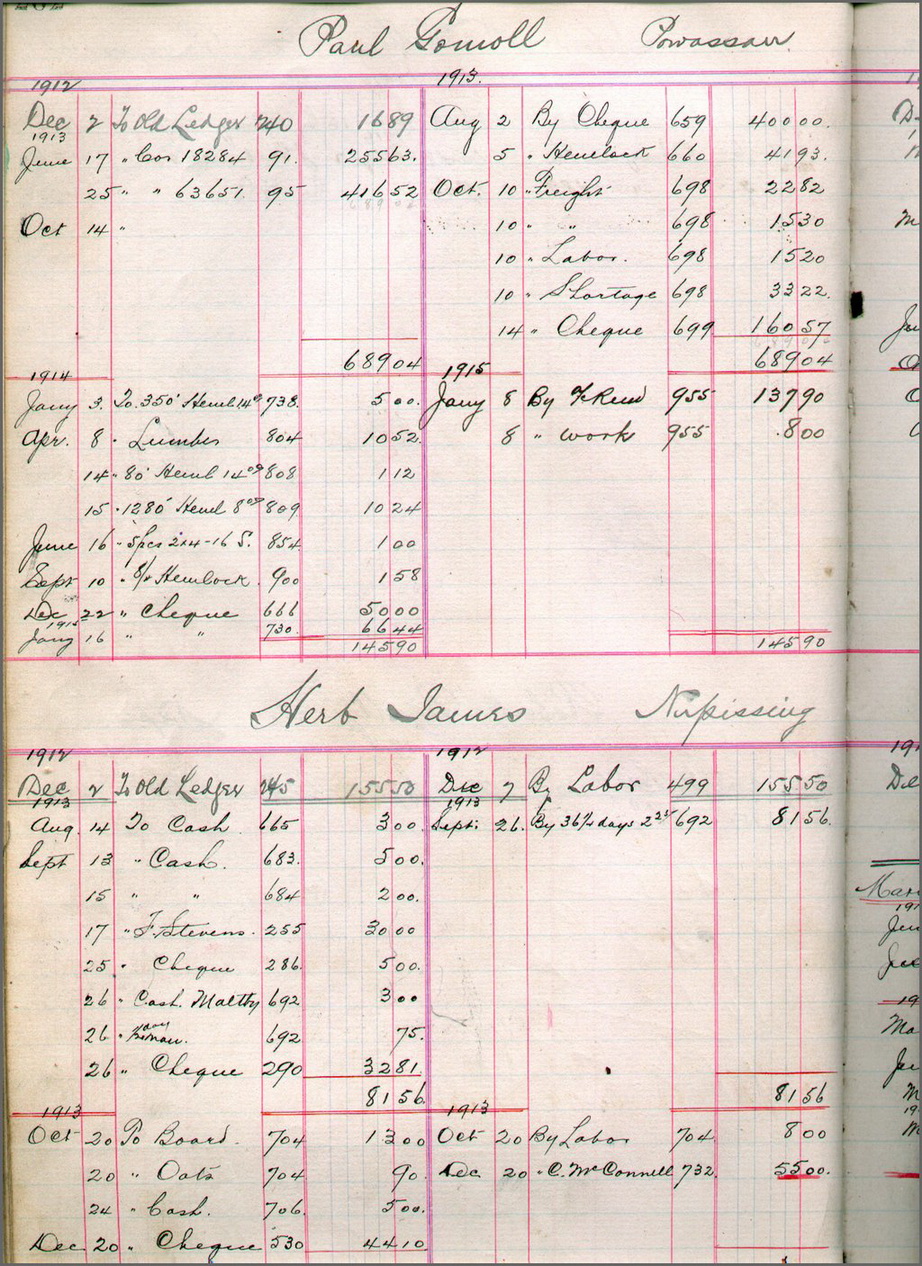 Paul Gomoll Powassan
1912 1913.
Dec 2 To Old Ledger 240 1689 Aug 2 By Cheque 659 40000.
1913
June 17 " Car 18284 91. 25563. 5 " Hemlock 660 4193.
25 " " 63651. 95 41652 Oct. 10 " Freight 698 2282
Oct 14 " 10 " " 698 1530
10 " Labor. 698 1520
10 " Shortage 698 3322.
14 " Cheque 699 16057
68904 68904
1914 1915
Jany 3. To. 350' Heml 14⁰⁰ 738. 500. Jany 8 By 955 13790
Apr. 8 " Lumber 804 1052. 8 " work 955 800
14 " 80' Heml 14⁰⁰ 808 112
15 " 1280' Heml 8⁰⁰ 809 1024
June 16 " 5pcs 2x4-16 S. 854 100
Sept 10 " Hemlock. 900 158
Dec 22 " Cheque 666 5000
1915
Jany 16 " " 730. 6644
14590 14590
Herb James Nipissing
1912 1912
Dec 2 To Old Ledger 245 15550 Dec 7 By Labor 499 15550
1913 1913
Aug. 14 To Cash. 665 300. Sept. 26. By 36¼ days 2²⁵ 692 8156.
Sept 13 " Cash. 683. 500.
15 " " 684 200.
17 " F. Stevens. 255 3000
25 " Cheque 286. 500.
26 " Cash. Maltby 692 300
26 " 692 75.
26 " Cheque 290 3281.
8156. 8156
1913 1913
Oct 20 To Board. 704 1300 Oct 20 By Labor 704 800
20 " Oats 704 90. Dec 20 " C. McConnell 732. 5500.
24 " Cash. 706. 500.
Dec 20 " Cheque 530 4410